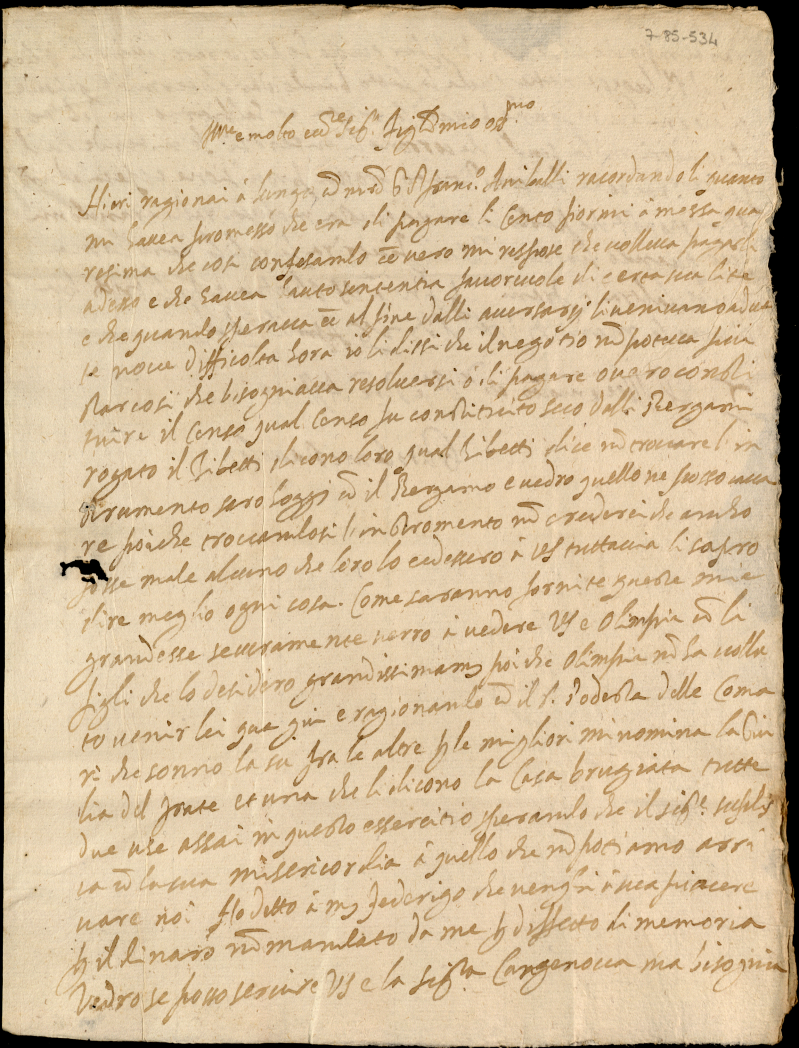 7-85-534
e molto ecc.re Sig.r Sig.r mio oss.mo
Hieri ragionai à lungo co Aniballi racordandoli quanto
mi havea promesso che era di pagare li cento fiorini à meza qua
resima che così confesando ce vero mi respose che volleva pagarli
adesso e che havea hauto sententia favorevole di certa sua lite
e che quando sperava al fine dalli aversarij li venivano adut
te nove difficolta hora io li dissi che il negotio no poteva più
star così che bisogniava resolversi ò di pagare overo consti
tuire il Censo qual Censo fu constituito seco dalli Bergami
rogato il Zibetti dicono loro qual Zibetti dice no trovare l'in
strumento saro hoggi co il Bergamo e vedro quello ne posso cava
re poiche trovandosi l'instromento no crederei che ancho
fosse male alcuno che loro lo cedessero à VS tuttavia li sapro
dire meglio ogni cosa. Come saranno fornite queste mie
grandesse sicuramente verro à vedere VS e Olimpia co li
figli che lo desidero poiche Olimpia no ha vollu
to venir lei qua giù e ragionando co il S. Podesta delle Coma
ri che sonno la su fra le altre le migliori mi nomina la Giu
lia del frate et una che li dicono la Casa brugiata tutte
due use assai in questo essercitio sperando che il sig.re suplis
ca co la sua misericordia à quello che no potiamo arri
vare noi Ho ditto à ms Federigo che venghi à sua piacere
il dinaro no mandato da me difetto di memoria
Vedro se posso servire VS e la sig.ra ma bisognia